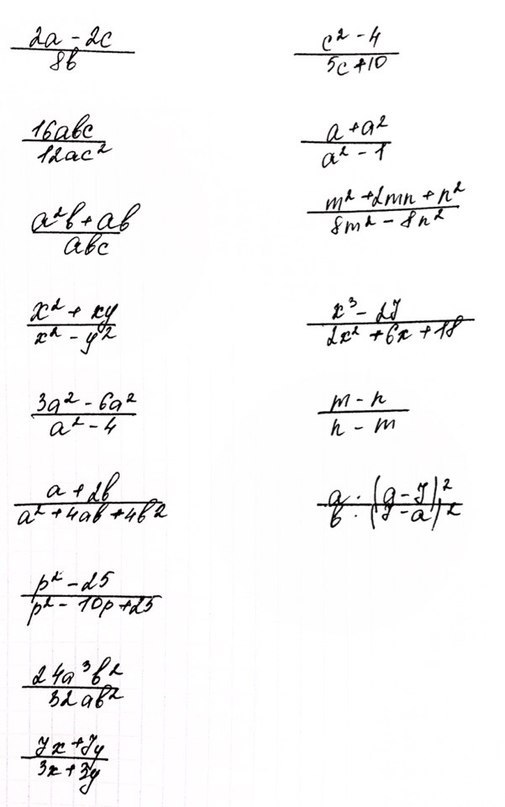 (2a - 2c)/(8b)
(16abc)/(12ac²)
(a²b + ab)/(abc)
(x² + xy)/(x² - y²)
(3a² - 6a²)/(a² - 4)
(a + 2b)/(a² + 4ab + 4b²)
(p² - 25)/(p² - 10p + 25)
(24a³b²)/(32ab²)
(7x + 7y)/(3x + 3y)
(c² - 4)/(5c + 10)
(a + a²)/(a² - 1)
(m² + 2mn + n²)/(8m² - 8n²)
(x³ - 27)/(2x² + 6x + 18)
(m - n)/(n - m)
(a · (a - 7)²)/(b · (7 - a)²)